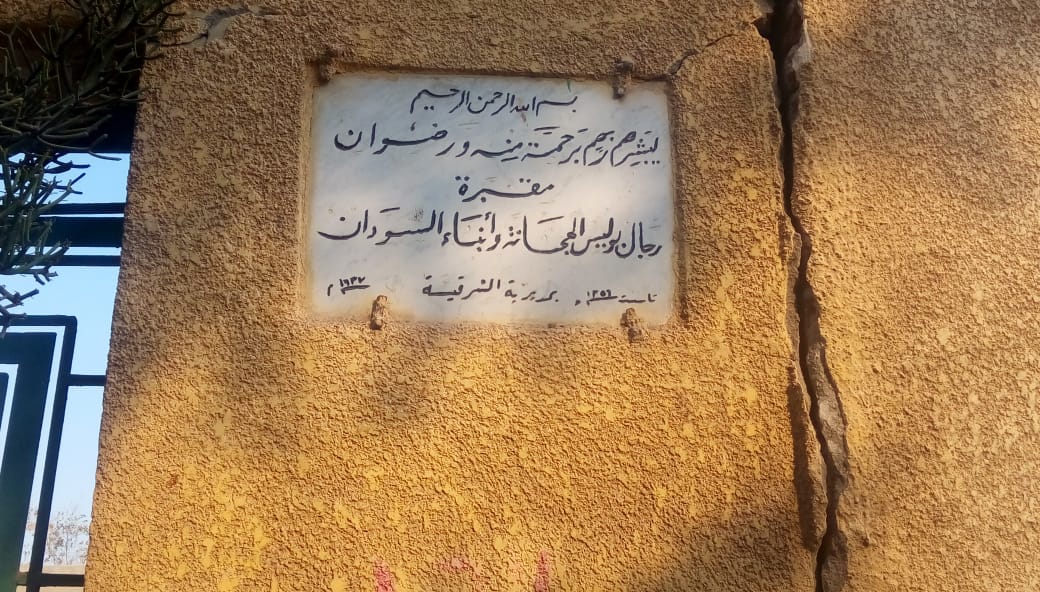 بسم الله الرحمن الرحيم
يبشرهم ربهم برحمة منه ورضوان
مقبرة
رجال بوليس الهجانة وأبناء السودان
تاسست ١٣٥٦ ه بمديرية الشرقية ١٩٣٧ م